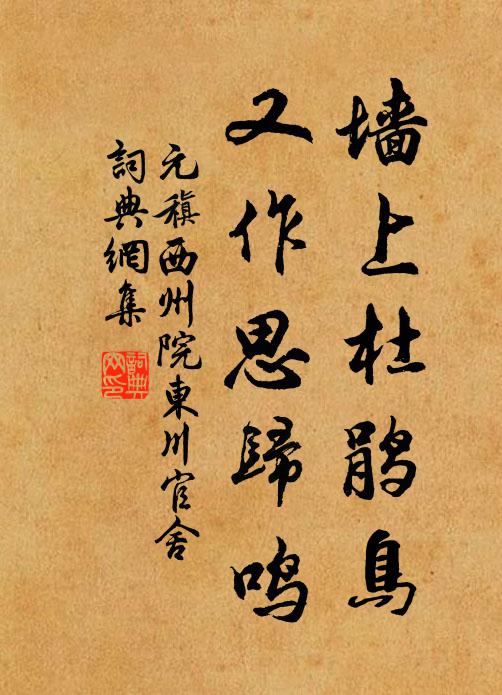 墙上杜鹃鳥
又作思歸鸣
元稹西州院東川官舍
詞典網集
詞典
网印